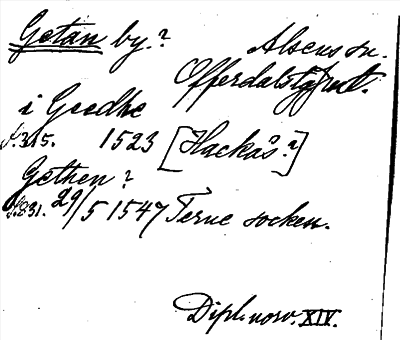 Getan by.?
Alsens sn.
Offerdals tg.
i Goedhe
s. 315. 1523 [Hackås?]
Gethen?
s. 831. 29/5 1547 Terne socken.
Dipl. norv. XIV.